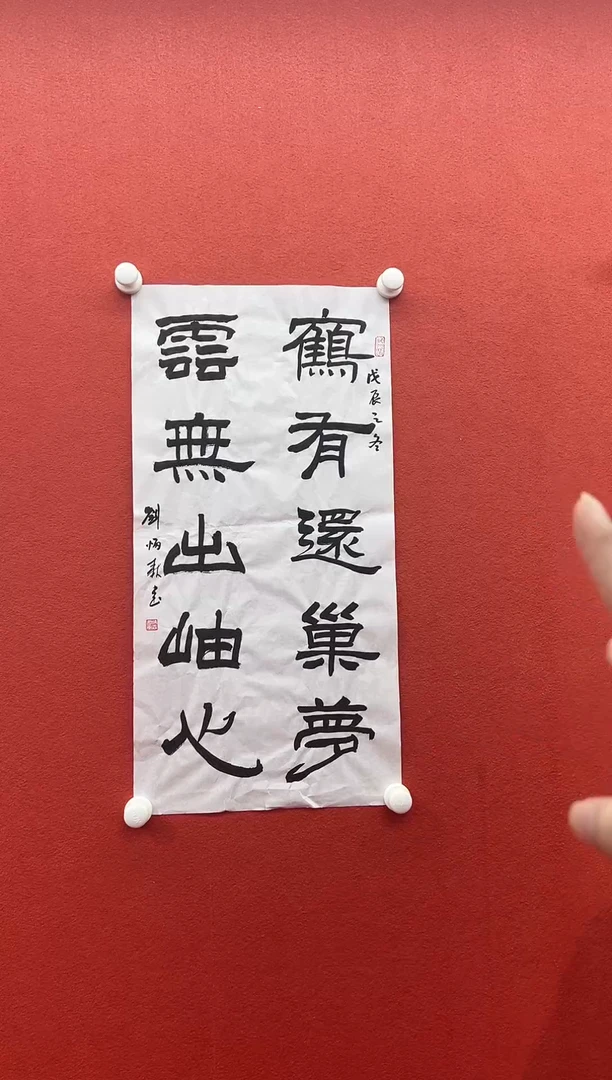 戊辰之冬
鶴有還巢夢
雲無出岫心
劉炳森書